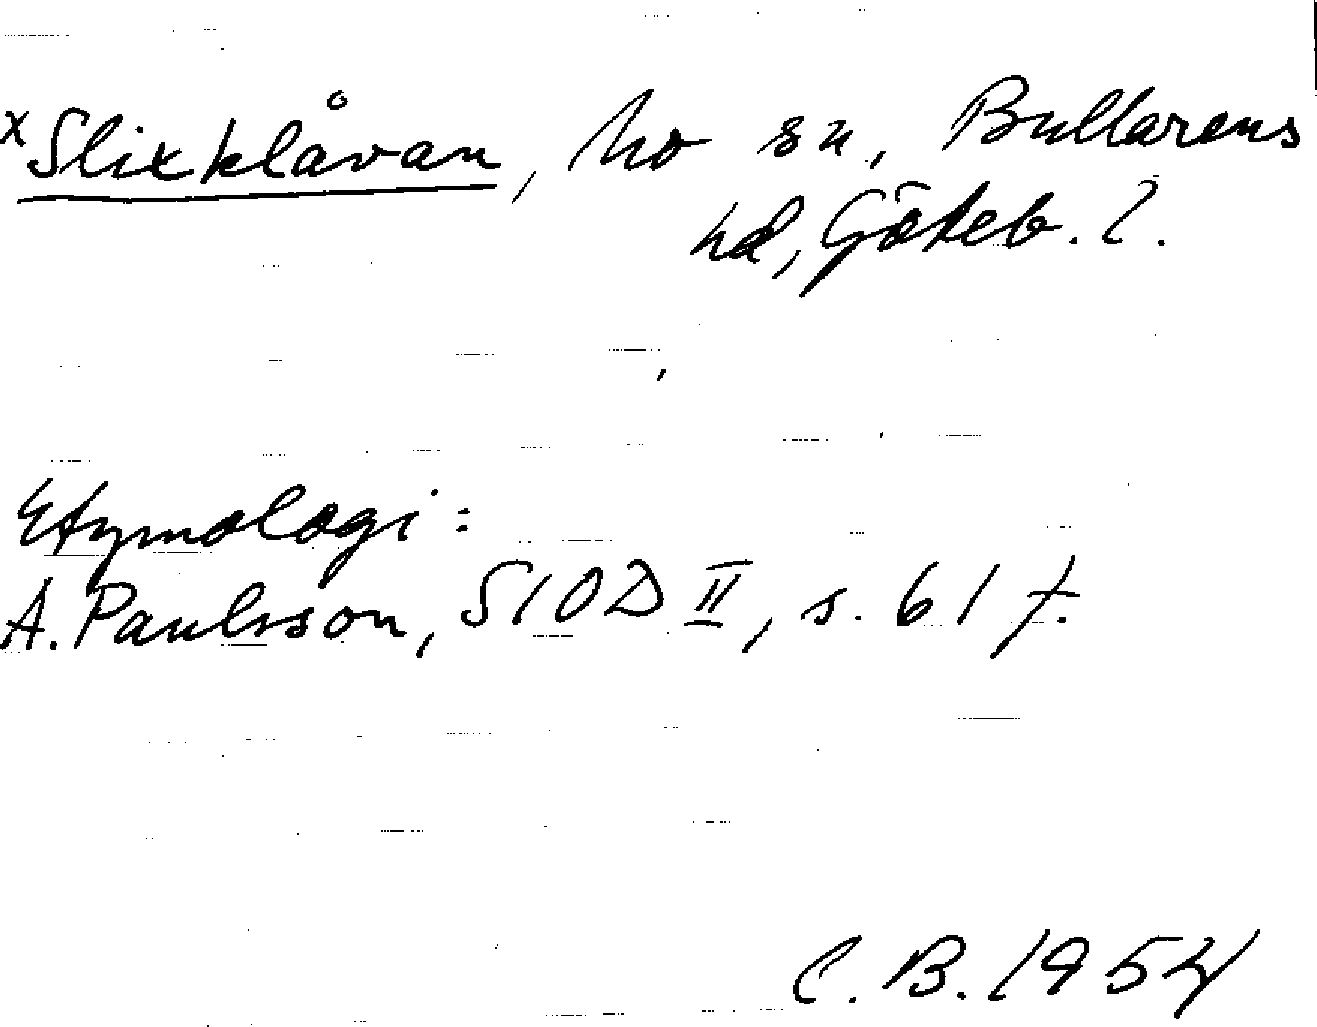 x Slixklåvan, Mo sn, Bullarens
hd, Göteb. l.
Etymologi:
A. Paulsson, SIOD II, s. 61 f.
C. B. 1954